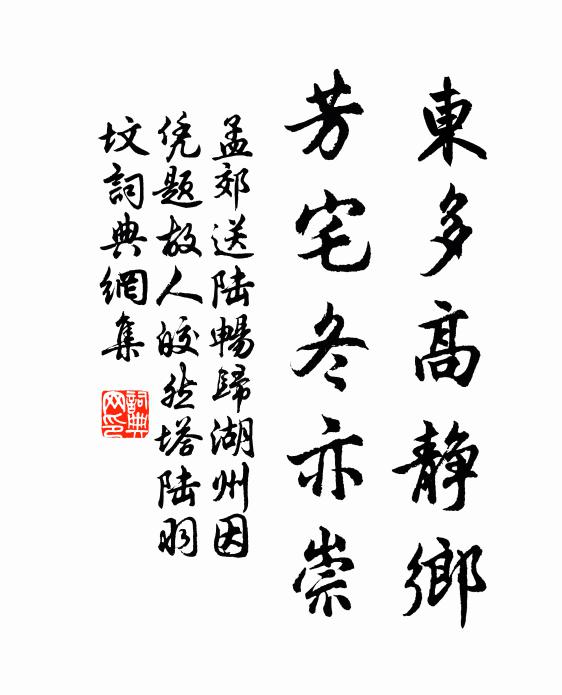 東多高静鄉
芳宅冬亦崇
孟郊送陆暢歸湖州因
凭題故人皎然塔陆羽
坟詞典網集
詞典
网印